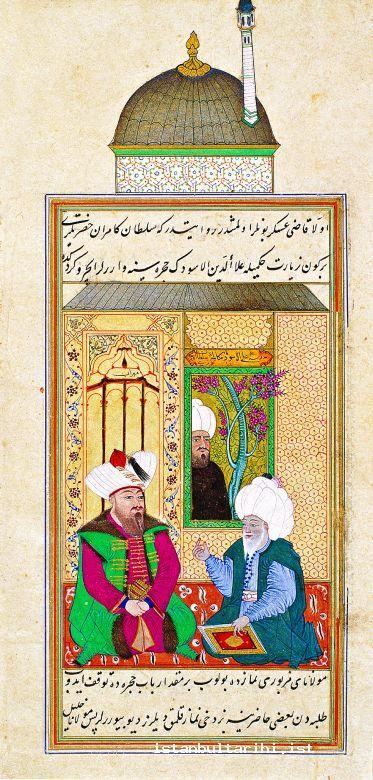 اولا قاضی عسکر بونلر اولمشدر روایتدر که سلطان کامران خضرتلری
بر کون زیارت حکمیله علاء الدین الاسودک حجره سینه واررلر
محراب
علی الاسود
مولانای مزبوری نمازده بولوب بر مقدار باب حجره ده توقف ایدوب
طلبه دن بعضی حاضرینه نزدخی نماز قلق دیلرز دیو بیوررلر پس مولانا خلیل
istanbultarihi.ist